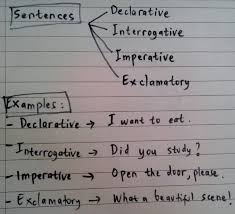 Sentences
Declarative
Interrogative
Imperative
Exclamatory
Examples:
- Declarative → I want to eat.
- Interrogative → Did you study?
- Imperative → Open the door, please.
- Exclamatory → What a beautiful scene!